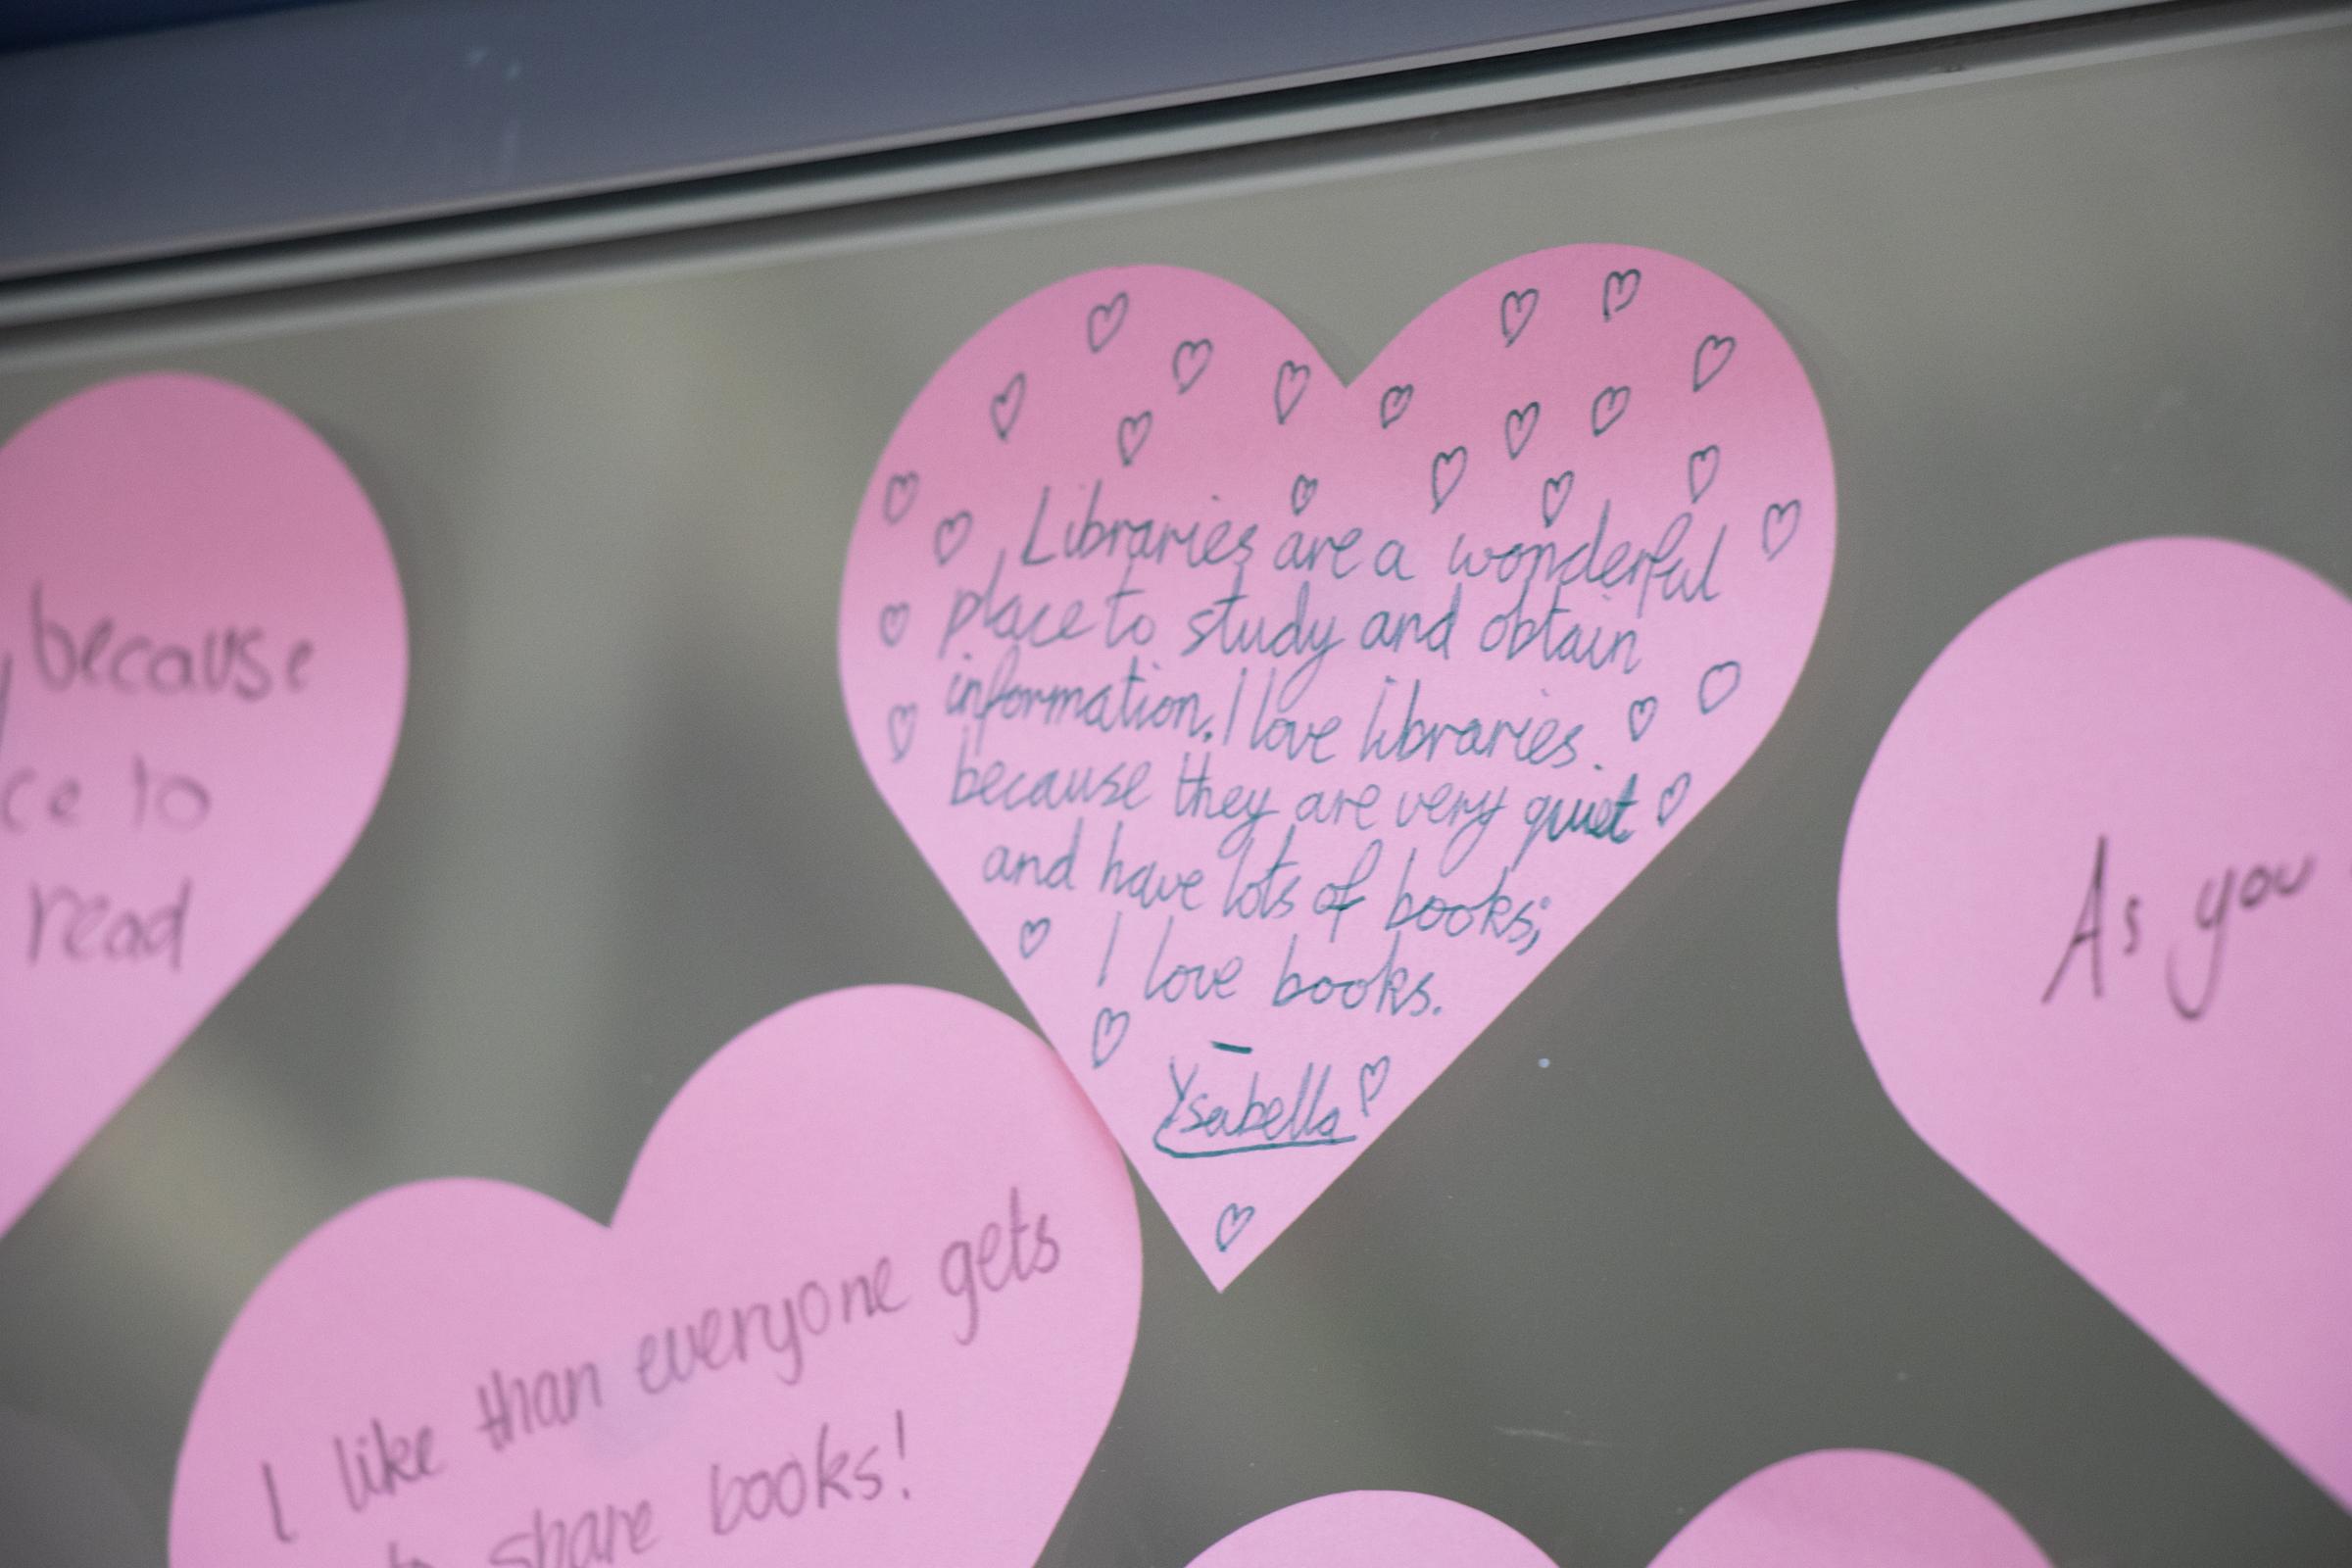 Libraries are a wonderful
place to study and obtain
information. I love libraries
because they are very quiet
and have lots of books;
I love books.
–
Ysabella
because
ce to
read
I like than everyone gets
to share books!
As you